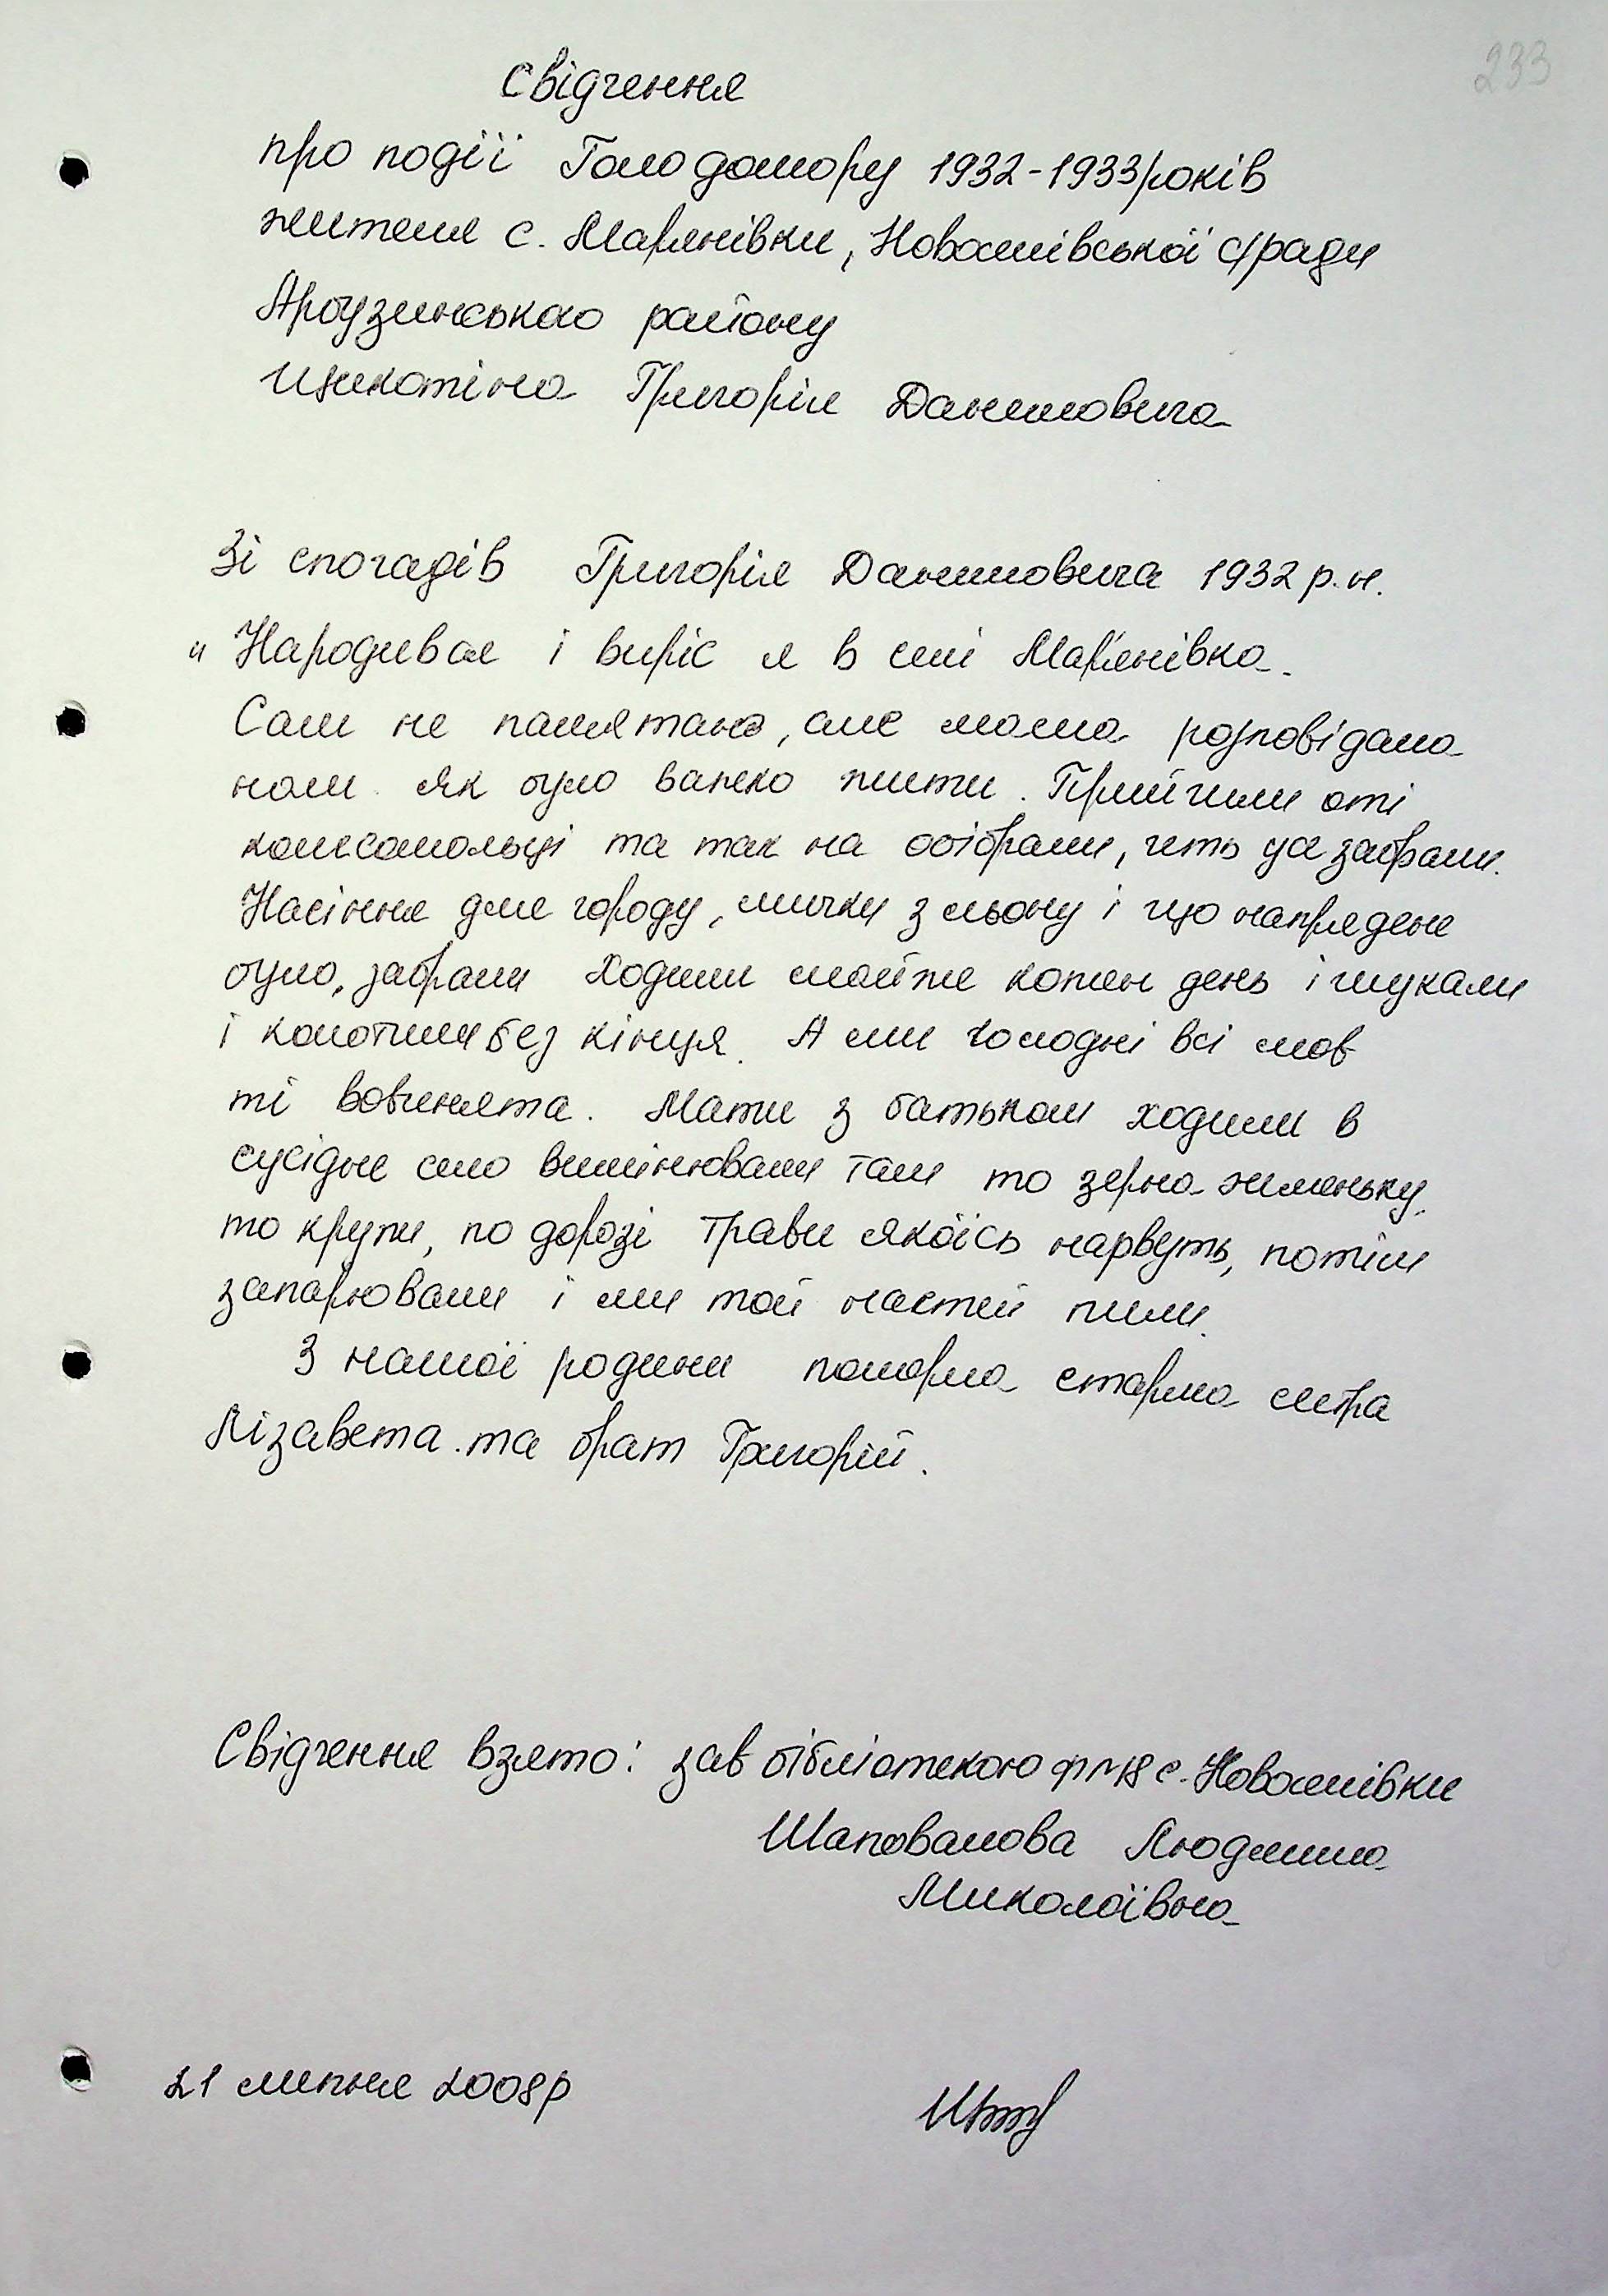 233
Свідчення
про події Голодомору 1932-1933 років
жителя с. Мар'янівки, Новоселівської с/ради
Арбузинського району
Григорія Даниловича
Зі спогадів Григорія Даниловича 1932 р.н.
"Народився і виріс я в селі Мар'янівка.
Сам не памятаю, але мама розповідала
нам як було важко жити. Прийшли оті
комсомольці та так на обібрали, геть усе забрали.
Насіння для городу, мички з льону і що напрядене
було, забрали Ходили майже кожен день і шукали
і колотили без кінця. А ми голодні всі мов
ті вовченята. Мати з батьком ходили в
сусіднє село вимінювали там то зерна жменьку,
то крупи, по дорозі трави якоїсь нарвуть, потім
запарювали і ми той настій пили.
З нашої родини померла старша сестра
Лізавета та брат Григорій.
Свідчення взято: зав бібліотекою ф №18 с. Новоселівки
Шаповалова Людмила
Миколаївна
21 липня 2008р